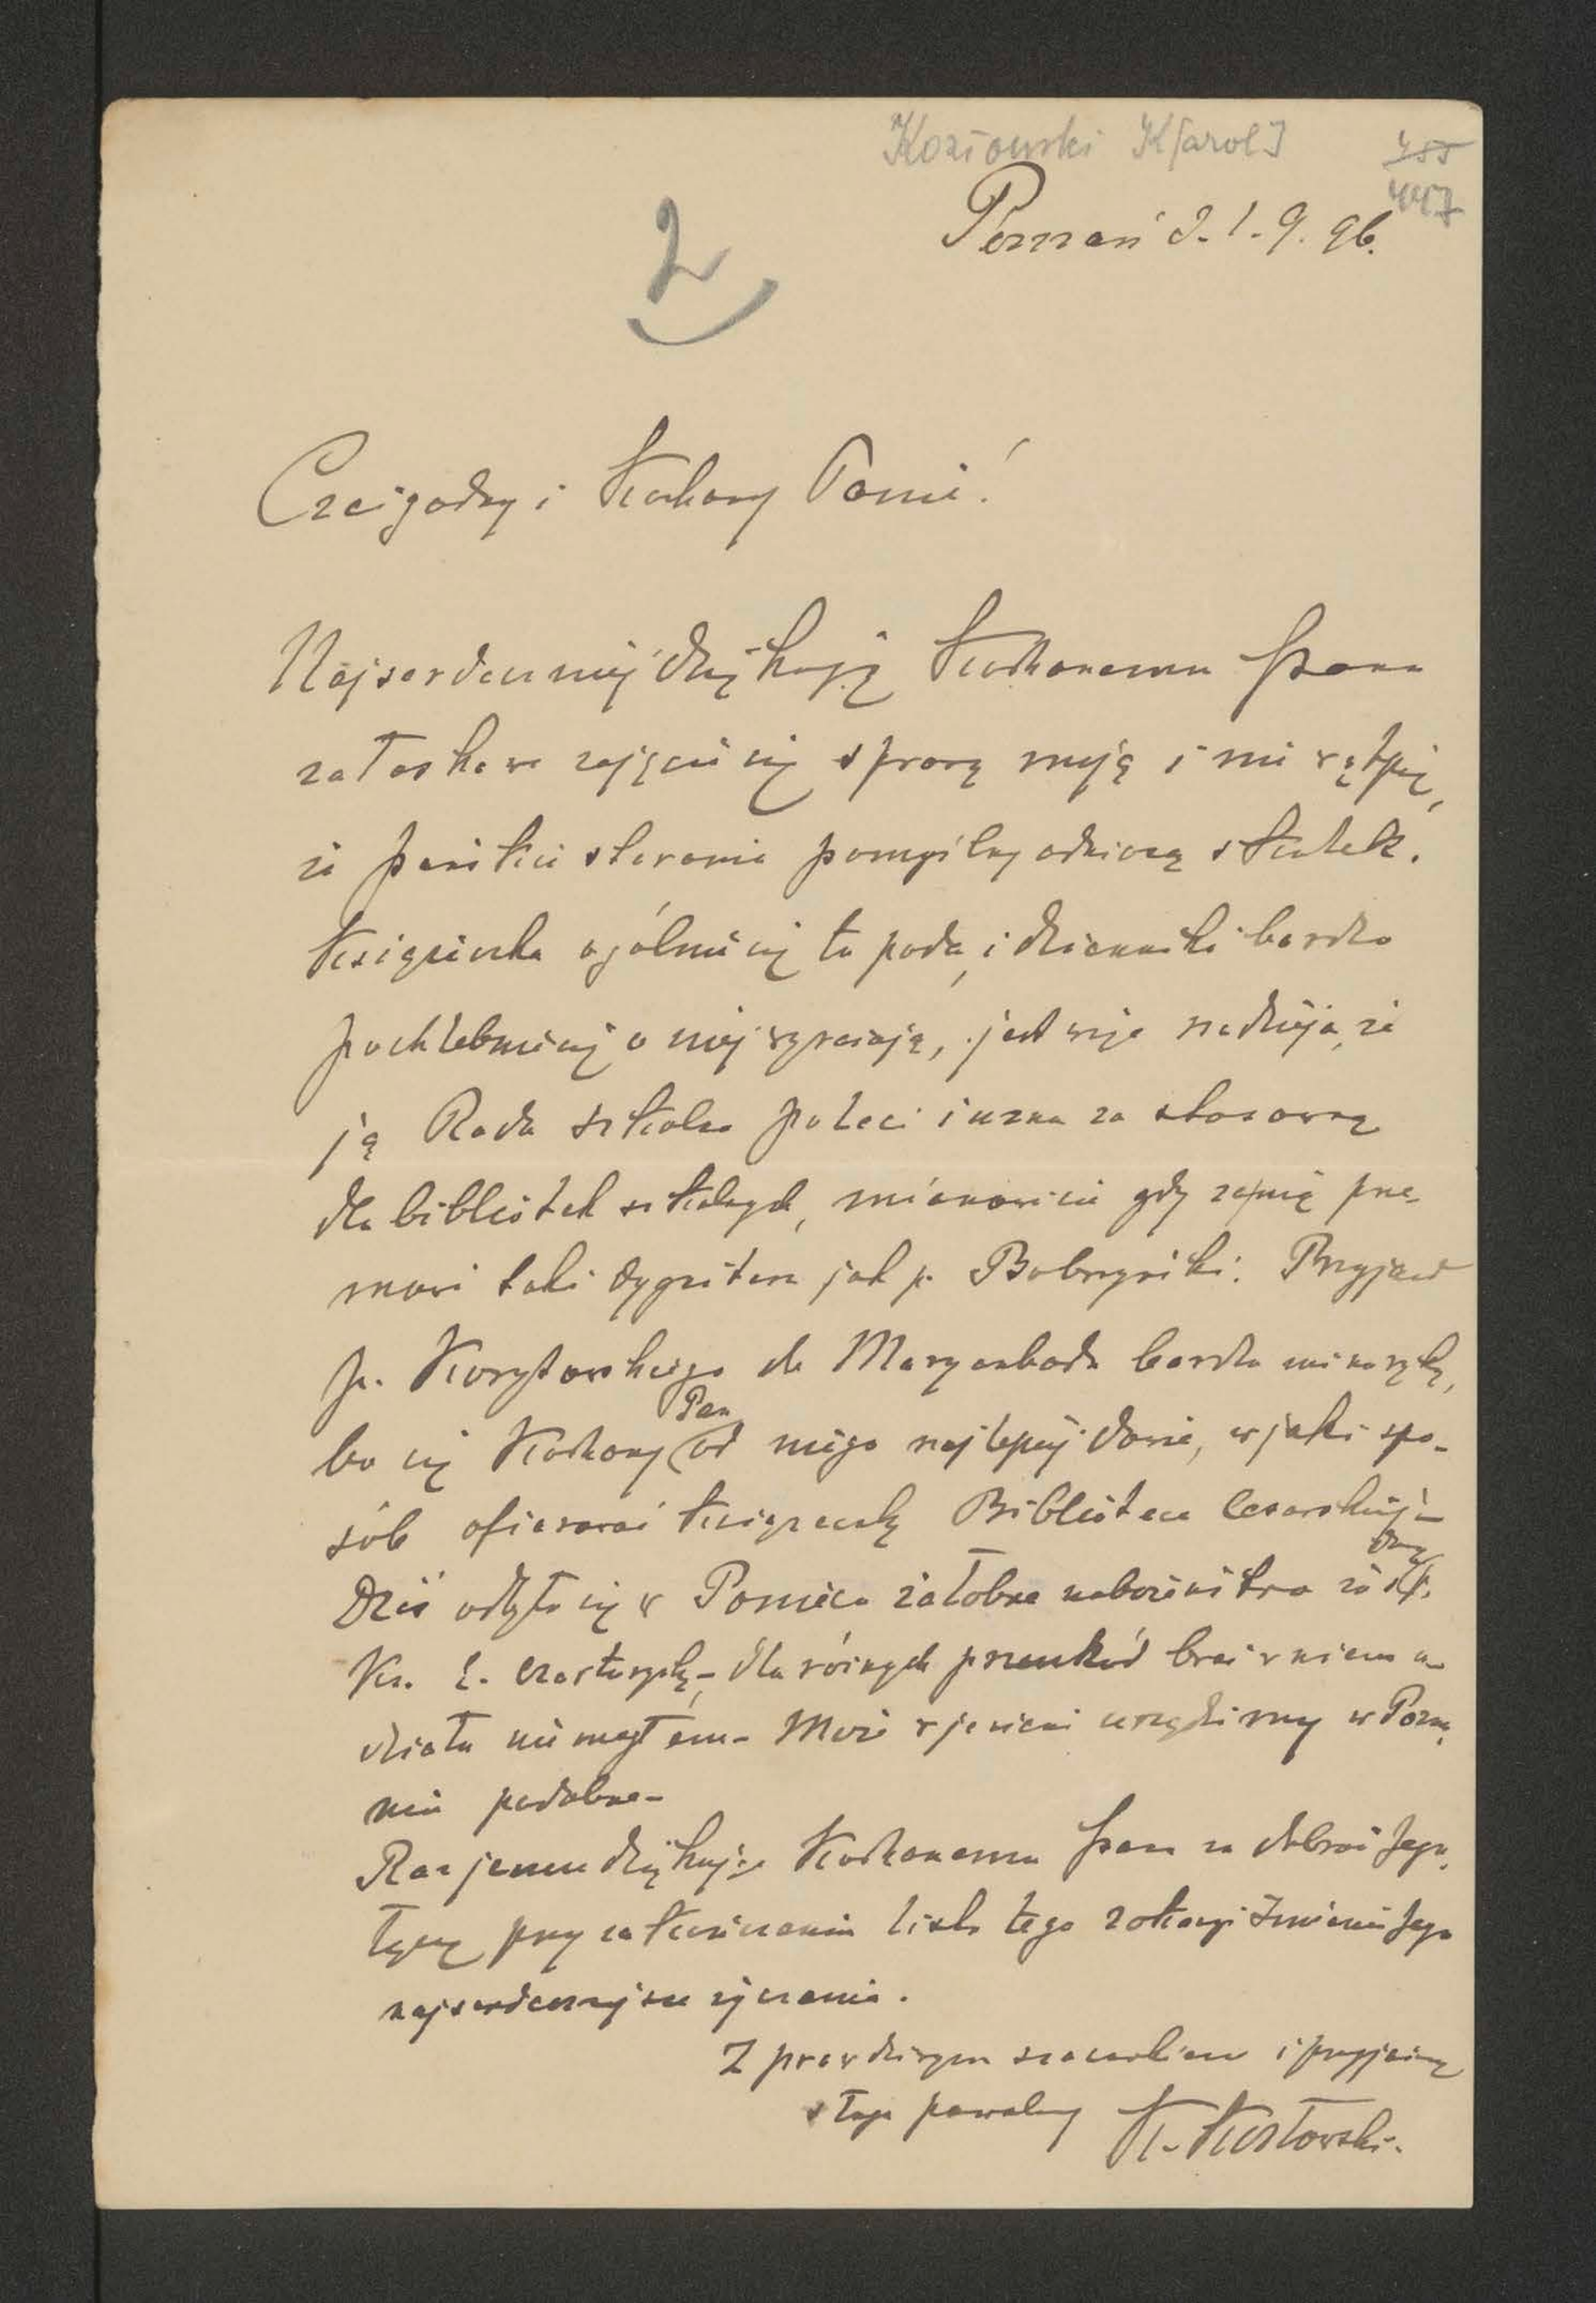 Kozłowski K[arol]
455
447
Poznań d. 1. 9. 96.
2
Czcigodny i Kochany Panie!
Najserdeczniej dziękuję Kochanemu Panu
za łaskawe zajęcie się sprawą moją i nie wątpię,
że pańskie starania pomyślny odniosą skutek.
Książeczka ogólnie się tu poda, i dzienniki bardzo
pochlebnie się o niej wyrażają, jest więc nadzieja, że
ją Rada szkolna poleci i uzna za stosowną
dla bibliotek szkolnych, mianowicie gdy za nią prze-
mówi taki dygnitarz jak p. Bobrzyński. Przyjazd
p. Korytowskiego do Maryenbadu bardzo mi na rękę,
bo się Kochany Pan od niego najlepiej dowie, w jaki spo-
sób ofiarować książeczkę Bibliotece Cesarskiej –
Dziś odbyło się w Poniecu żałobne nabożeństwo za duszę śp.
Ks. Z. Czartoryskiego – dla różnych przeszkód brać w niem u-
działu nie mogłem – Może w jesieni urządzimy w Pozna-
niu podobne –
Raz jeszcze dziękując Kochanemu Panu za dobroć Jego,
łączę przy zakończeniu listu tego z okazyi Imienin Jego
najserdeczniejsze życzenia.
Z prawdziwym szacunkiem i przyjaźnią
sługa powolny K. Kozłowski.